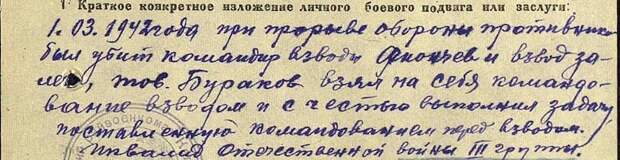 I Краткое конкретное изложение личного боевого подвига или заслуги:
1.03.1942 года при прорыве обороны противника
был убит командир взвода и взвод за-
лег, тов. Бураков взял на себя командо-
вание взводом и с честью выполнил задачу
поставленную командованием перед взводом.
Инвалид Отечественной войны III группы.